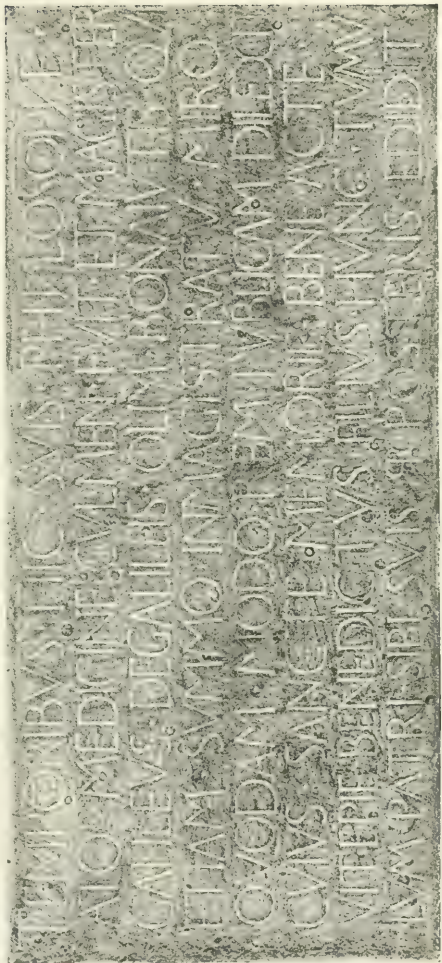 TEMPORIBVS · HIC · SVIS · PHILOSOPHIE ·
ATQ · MEDICINE · CVLMEN · FVIT · ET · MAGISTER
GALILEVS · DEGALILEIS · OLIM · BONAIVTIS · QVI
ETIAM · SVMMO · IN MAGISTRATV · MIRO
QVODAM · MODO · REMPVBLICAM · DILEXIT
CVIVS · SANCTE · MEMORIE · BENE · ACTE ·
VITE · PIE · BENEDICTVS · FILIVS · HVNC · TVMV
LVM · PATRI · SIBI · SVISQ · POSTERIS · EDIDIT